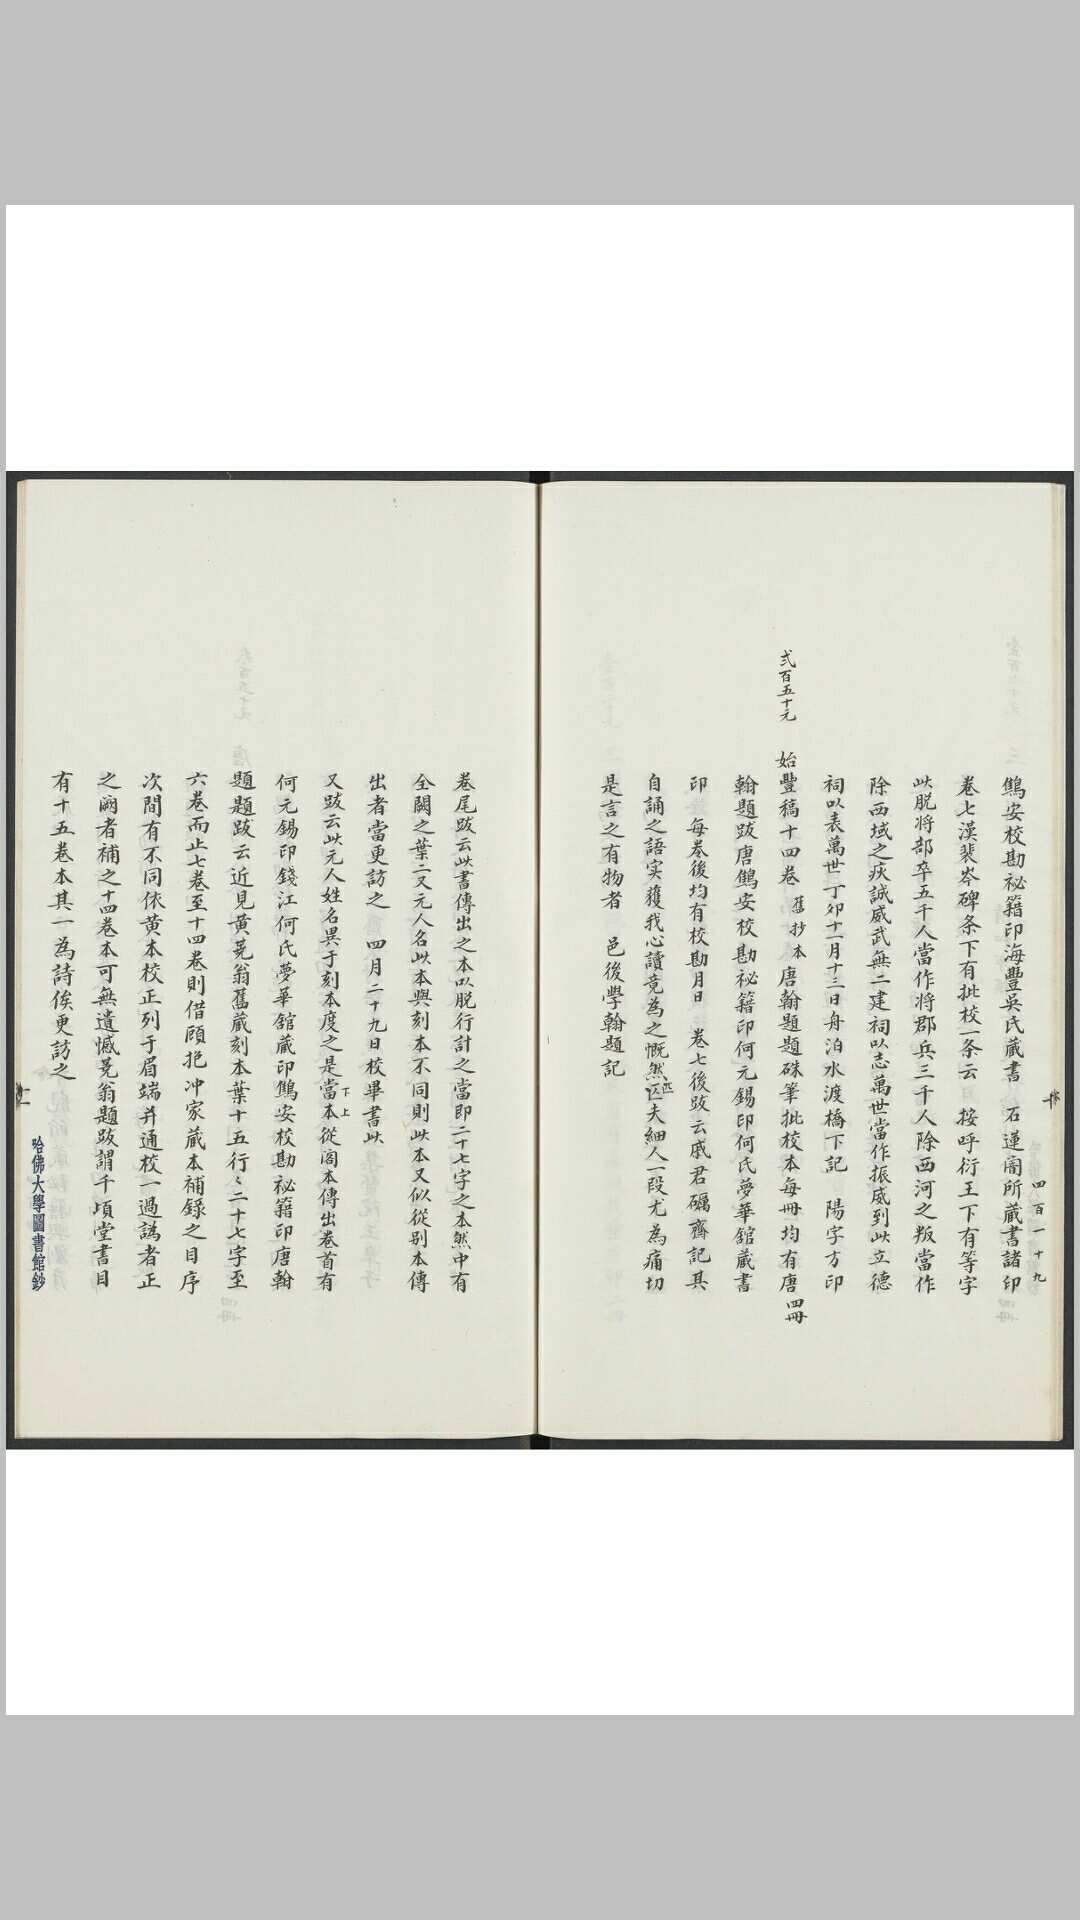 四百一十九
鷦安校勘祕籍印海豐吳氏藏書　石蓮闇所藏書諸印
卷七漢裴岑碑条下有批校一条云　按呼衍王下有等字
此脱将部卒五千人當作将郡兵三千人除西河之叛當作
除西域之疢誠威武無二建祠以志萬世當作振威到此立德
祠以表萬世丁夘十一月十三日舟泊水渡橋下記　陽字方印
弍百五十元　始豐稿十四卷　舊抄本　唐翰題題硃筆批校本每冊均有唐　四冊
翰題跋唐鷦安校勘祕籍印何元錫印何氏夢華館藏書
印　每卷後均有校勘月日　卷七後跋云戚君礪齋記其
自誦之語实獲我心讀竟為之慨然区匹夫細人一段尤為痛切
是言之有物者　邑後學翰題記
卷尾跋云此書傳出之本以脱行計之當即二十七字之本然中有
全闕之葉二又元人名此本與刻本不同則此本又似從别本傳
出者當更訪之　四月二十九日校畢書此
又跋云此元人姓名異于刻本度之是當下本上從閣本傳出卷首有
何元錫印錢江何氏夢華舘藏印鷦安校勘祕籍印唐翰
題題跋云近見黄蕘翁舊藏刻本葉十五行〻二十七字至
六卷而止七卷至十四卷則借顧抱冲家藏本補錄之目序
次間有不同依黄本校正列于眉端并通校一過譌者正
之闕者補之十四卷本可無遺憾蕘翁題跋謂千頃堂書目
有十五卷本其一為詩俟更訪之
哈佛大學圖書館鈔